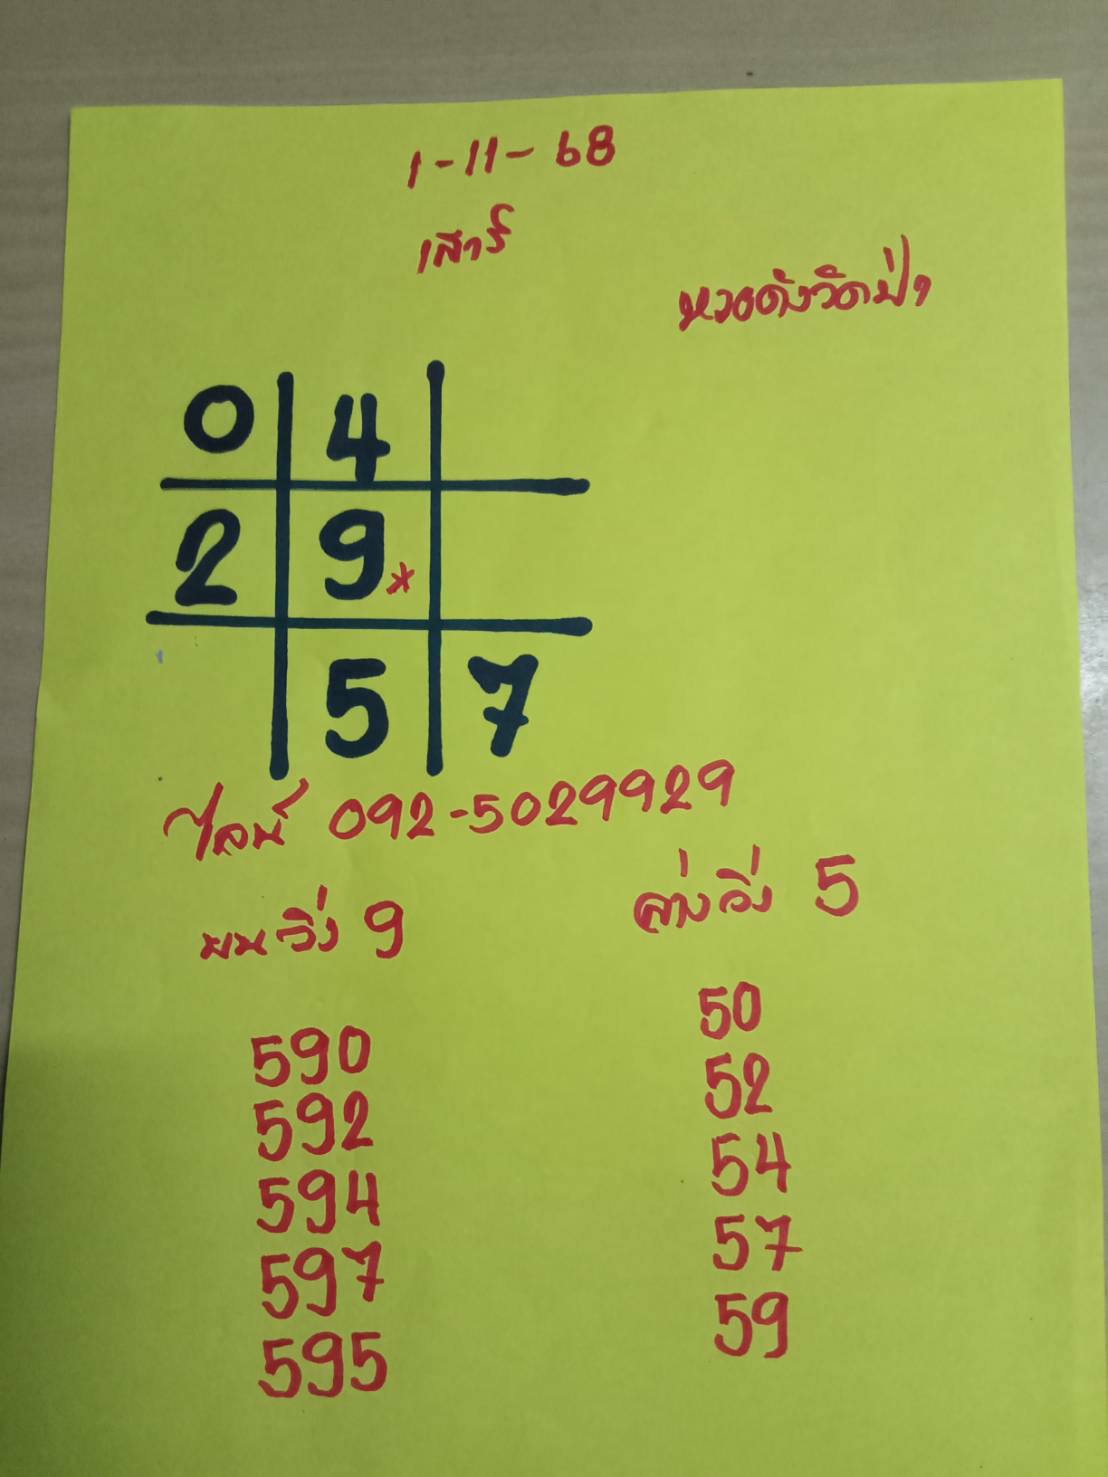 1-11-68
เสาร์
หวยดังวัดป่า
0 4
2 9*
5 7
ไลน์ 092-5029929
บนวิ่ง 9 ล่างวิ่ง 5
590 50
592 52
594 54
597 57
595 59